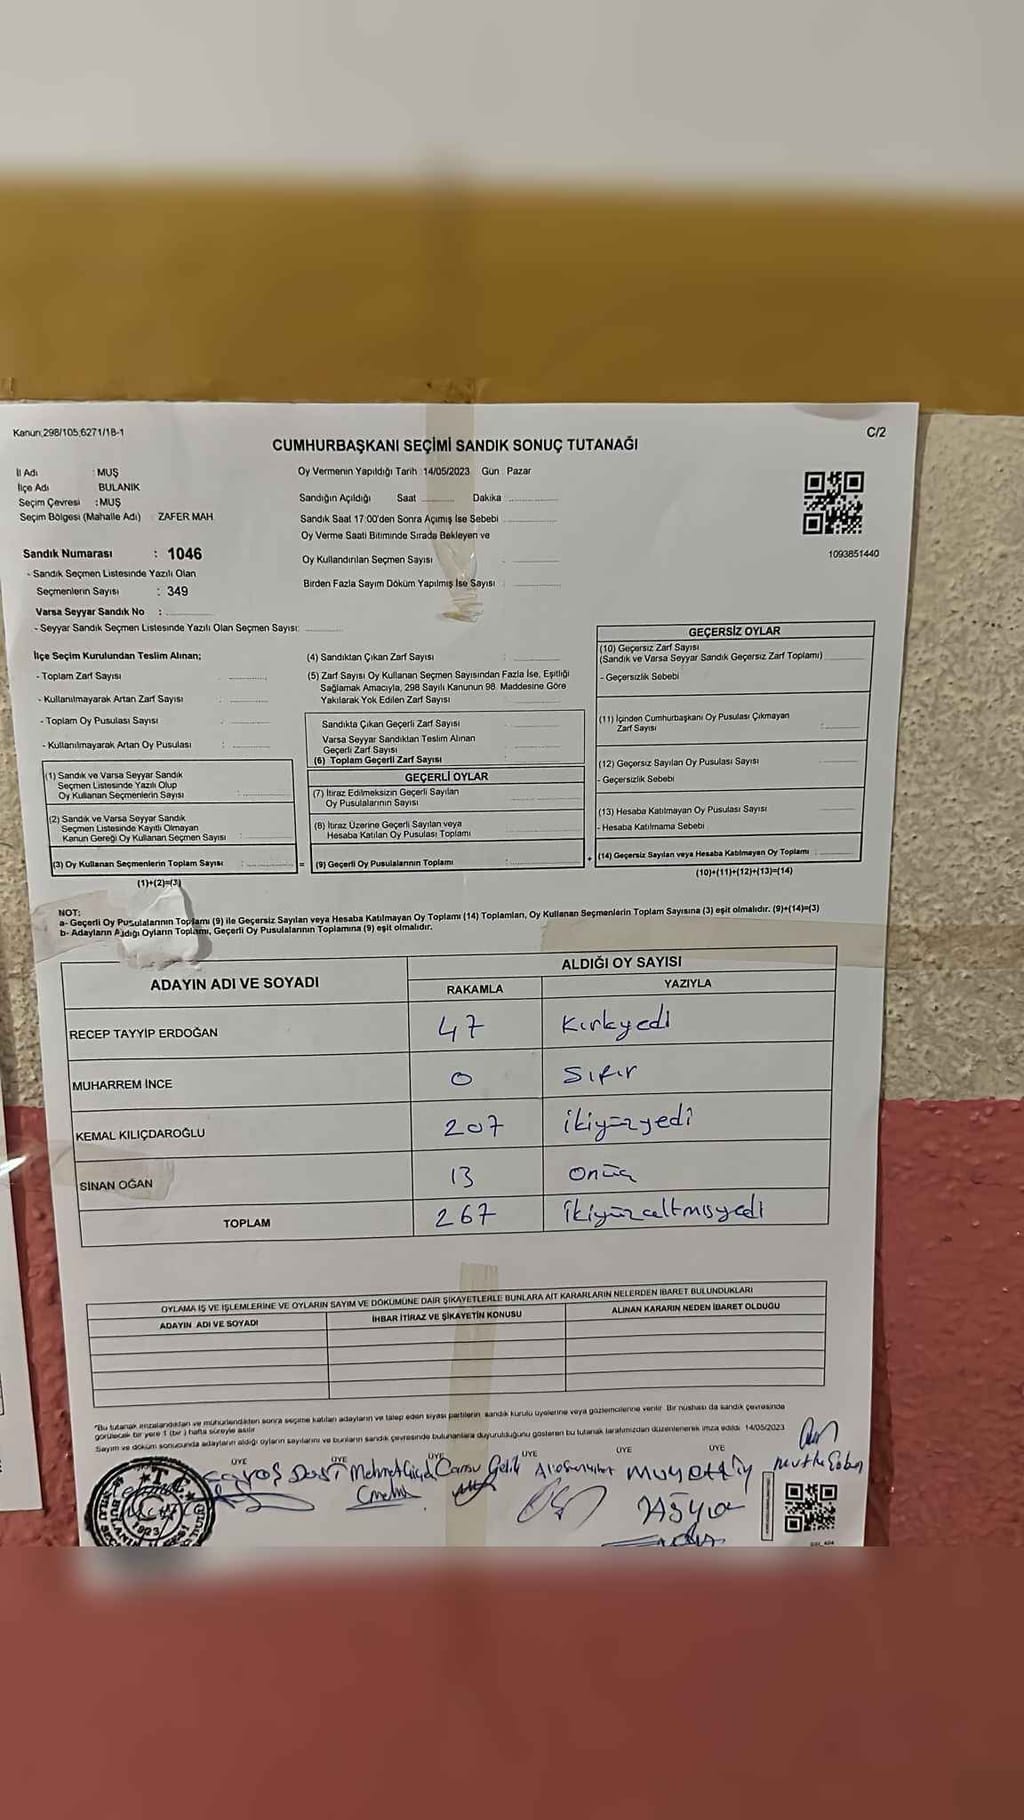 Kanun;298/105;6271/18-1
C/2
CUMHURBAŞKANI SEÇİMİ SANDIK SONUÇ TUTANAĞI
İl Adı : MUŞ
İlçe Adı BULANIK
Seçim Çevresi : MUŞ
Seçim Bölgesi (Mahalle Adı) ZAFER MAH.
Oy Vermenin Yapıldığı Tarih 14/05/2023 Gün Pazar
Sandığın Açıldığı Saat Dakika
Sandık Saat 17:00'den Sonra Açımış İse Sebebi
Oy Verme Saati Bitiminde Sırada Bekleyen ve
Oy Kullandırılan Seçmen Sayısı
Birden Fazla Sayım Döküm Yapılmış İse Sayısı
1093851440
Sandık Numarası : 1046
- Sandık Seçmen Listesinde Yazılı Olan
Seçmenlerin Sayısı : 349
Varsa Seyyar Sandık No :
- Seyyar Sandık Seçmen Listesinde Yazılı Olan Seçmen Sayısı:
İlçe Seçim Kurulundan Teslim Alınan;
- Toplam Zarf Sayısı
- Kullanılmayarak Artan Zarf Sayısı
- Toplam Oy Pusulası Sayısı
- Kullanılmayarak Artan Oy Pusulası
(1) Sandık ve Varsa Seyyar Sandık
Seçmen Listesinde Yazılı Olup
Oy Kullanan Seçmenlerin Sayısı
(2) Sandık ve Varsa Seyyar Sandık
Seçmen Listesinde Kayıtlı Olmayan
Kanun Gereği Oy Kullanan Seçmen Sayısı
(3) Oy Kullanan Seçmenlerin Toplam Sayısı
(1)+(2)=(3)
(4) Sandıktan Çıkan Zarf Sayısı
(5) Zarf Sayısı Oy Kullanan Seçmen Sayısından Fazla İse, Eşitliği
Sağlamak Amacıyla, 298 Sayılı Kanunun 98. Maddesine Göre
Yakılarak Yok Edilen Zarf Sayısı
Sandıkta Çıkan Geçerli Zarf Sayısı
Varsa Seyyar Sandıktan Teslim Alınan
Geçerli Zarf Sayısı
(6) Toplam Geçerli Zarf Sayısı
GEÇERLİ OYLAR
(7) İtiraz Edilmeksizin Geçerli Sayılan
Oy Pusulalarının Sayısı
(8) İtiraz Üzerine Geçerli Sayılan veya
Hesaba Katılan Oy Pusulası Toplamı
= (9) Geçerli Oy Pusulalarının Toplamı
GEÇERSİZ OYLAR
(10) Geçersiz Zarf Sayısı
(Sandık ve Varsa Seyyar Sandık Geçersiz Zarf Toplamı)
- Geçersizlik Sebebi
(11) İçinden Cumhurbaşkanı Oy Pusulası Çıkmayan
Zarf Sayısı
(12) Geçersiz Sayılan Oy Pusulası Sayısı
- Geçersizlik Sebebi
(13) Hesaba Katılmayan Oy Pusulası Sayısı
- Hesaba Katılmama Sebebi
+ (14) Geçersiz Sayılan veya Hesaba Katılmayan Oy Toplamı
(10)+(11)+(12)+(13)=(14)
NOT:
a- Geçerli Oy Pusulalarının Toplamı (9) ile Geçersiz Sayılan veya Hesaba Katılmayan Oy Toplamı (14) Toplamları, Oy Kullanan Seçmenlerin Toplam Sayısına (3) eşit olmalıdır. (9)+(14)=(3)
b- Adayların Aldığı Oyların Toplamı, Geçerli Oy Pusulalarının Toplamına (9) eşit olmalıdır.
ADAYIN ADI VE SOYADI ALDIĞI OY SAYISI
RAKAMLA YAZIYLA
RECEP TAYYİP ERDOĞAN 47 Kırkyedi
MUHARREM İNCE 0 Sıfır
KEMAL KILIÇDAROĞLU 207 ikiyüzyedi
SİNAN OĞAN 13 onüç
TOPLAM 267 ikiyüzaltmışyedi
OYLAMA İŞ VE İŞLEMLERİNE VE OYLARIN SAYIM VE DÖKÜMÜNE DAİR ŞİKAYETLERLE BUNLARA AİT KARARLARIN NELERDEN İBARET BULUNDUKLARI
ADAYIN ADI VE SOYADI İHBAR İTİRAZ VE ŞİKAYETİN KONUSU ALINAN KARARIN NEDEN İBARET OLDUĞU
"Bu tutanak imzalandıktan ve mühürlendikten sonra seçime katılan adayların ve talep eden siyasi partilerin sandık kurulu üyelerine veya gözlemcilerine verilir. Bir nushası da sandık çevresinde
görülecek bir yere 1 (bir) hafta süreyle asılır.
Sayım ve döküm sonucunda adayların aldığı oyların sayılarını ve bunların sandık çevresinde bulunanlara duyurulduğunu gösteren bu tutanak tarafımızdan düzenlenerek imza edildi. 14/05/2023
ÜYE ÜYE ÜYE ÜYE ÜYE ÜYE